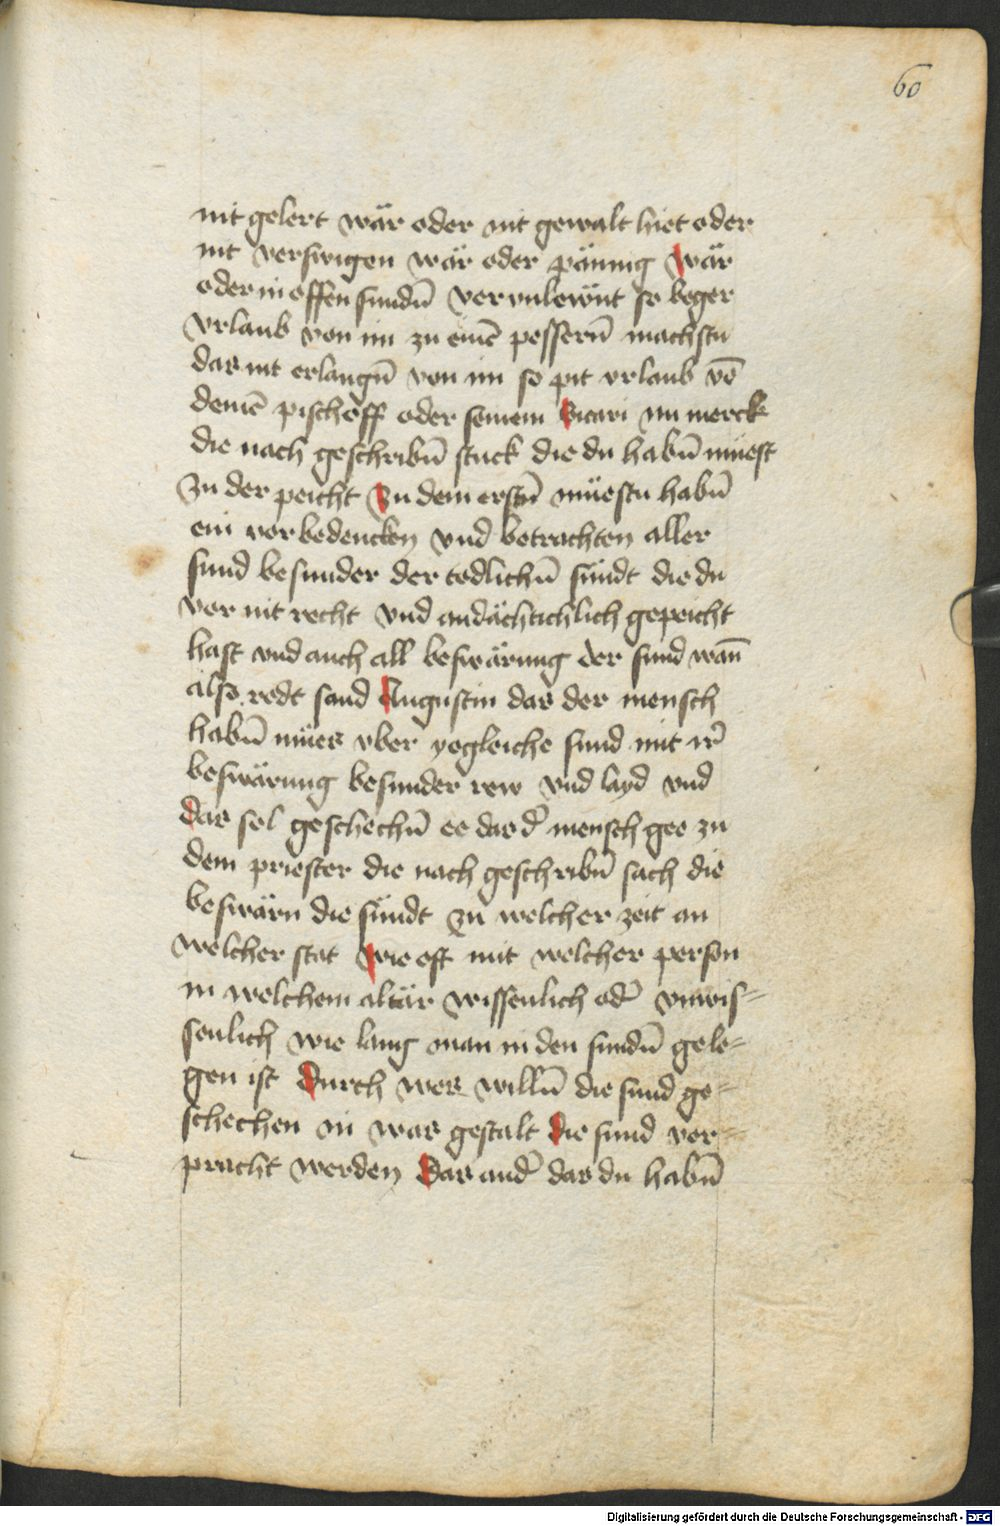 60
nit gelert wär oder nit gewalt hiet oder
nit verswigen wär oder pännig wär
oder in offen sundn̄ verunlewnt so beger
vrlaub von im zu eine᷎ pessern̄ machstu
das nit erlangn̄ von im so pit vrlaub vō
deinē pischoff oder seinem vicari nu merck
die nach geschribn̄ stuck die du habn̄ müest
zu der peicht zu dem erstn̄ müestu habn̄
ein vorbedencken vnd betrachten aller
sund besunder der todlichn̄ sündt die du
vor nit recht vnd andächtichlich gepeicht
hast vnd auch all beswärung der sund wan̄
also redt sand Augustin das der mensch
habn̄ mües vber yegleiche sund mit ir᷎
beswärung besunder rew vnd layd vnd
das sol geschechn̄ ee das d᷎ mensch gee zu
dem priester die nach geschribn̄ sach die
beswärn die sündt zu welcher zeit an
welcher stat wie oft mit welcher person
in welchem altär wissenlich od᷎ vnwis-
senlich wie lang man in den sundn̄ gele-
gen ist durch wes willn̄ die sund ge-
schechen in was gestalt die sund ver-
pracht werden Das and᷎ das du habn̄
Digitalisierung gefördert durch die Deutsche Forschungsgemeinschaft - DFG